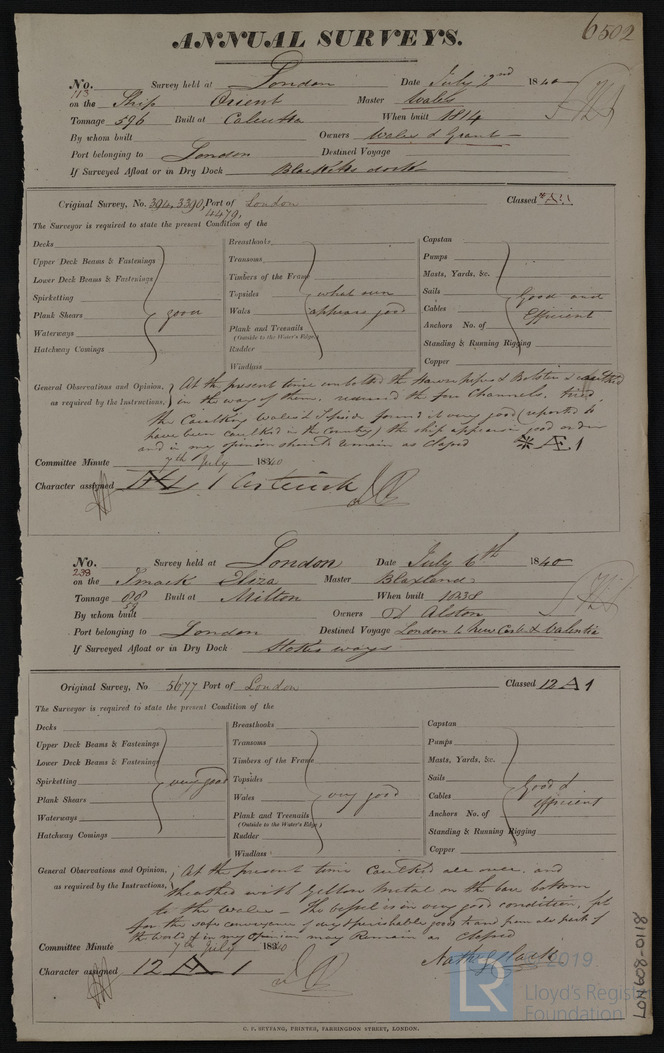 6502
ANNUAL SURVEYS.
No. 113 Survey held at London Date July 2nd 1840
on the Ship Orient Master Wales
Tonnage 596 Built at Calcutta When built 1814
By whom built Owners Wales & Grant
Port belonging to London Destined Voyage
If Surveyed Afloat or in Dry Dock dock
Original Survey, No. 394, 3390, 4479, Port of London Classed *A1
The Surveyor is required to state the present Condition of the
Decks
Upper Deck Beams & Fastenings
Lower Deck Beams & Fastenings
Spirketting
Plank Shears good
Waterways
Hatchway Comings
Breasthooks
Transoms
Timbers of the Frame
Topsides what seen
Wales appears good
Plank and Treenails
(Outside to the Water's Edge)
Rudder
Windlass
Capstan
Pumps
Masts, Yards, &c.
Sails Good and
Cables Efficient
Anchors No. of
Standing & Running Rigging
Copper
General Observations and Opinion, At the present time the Hawse pipes & Bolsters & caulked
as required by the Instructions, in the way of them, the fore Channels, tried
the Caulking Wales & Topside found it very good (reported to
have been caulked in the Country) the ship appears in good order
and in my opinion should remain as classed *A1
Committee Minute 7th July 1840
Character assigned
No. 239 Survey held at London Date July 6th 1840
on the Smack Eliza Master Blaxland
Tonnage 88 59 Built at Milton When built 1838
By whom built Owners Alston
Port belonging to London Destined Voyage London to Newcastle & Valentia
If Surveyed Afloat or in Dry Dock Stokes ways
Original Survey, No 5677 Port of London Classed 12 A 1
The Surveyor is required to state the present Condition of the
Decks
Upper Deck Beams & Fastenings
Lower Deck Beams & Fastenings
Spirketting very good
Plank Shears
Waterways
Hatchway Comings
Breasthooks
Transoms
Timbers of the Frame
Topsides
Wales very good
Plank and Treenails
(Outside to the Water's Edge)
Rudder
Windlass
Capstan
Pumps
Masts, Yards, &c.
Sails Good &
Cables efficient
Anchors No. of
Standing & Running Rigging
Copper
General Observations and Opinion, At the present time Caulked all over and
as required by the Instructions, sheathed with Yellow Metal on the bare bottom
to the Wales - The Vessel is in very good condition, fit
for the safe conveyance of dry & perishable goods to and from all parts of
the World & in my Opinion may Remain as Classed
Committee Minute 7th July 1840
Character assigned 12 A 1
2019.
LR
Lloyd's Register
Foundation
LON608-0118
C. F. SEYFANG, PRINTER, FARRINGDON STREET, LONDON.